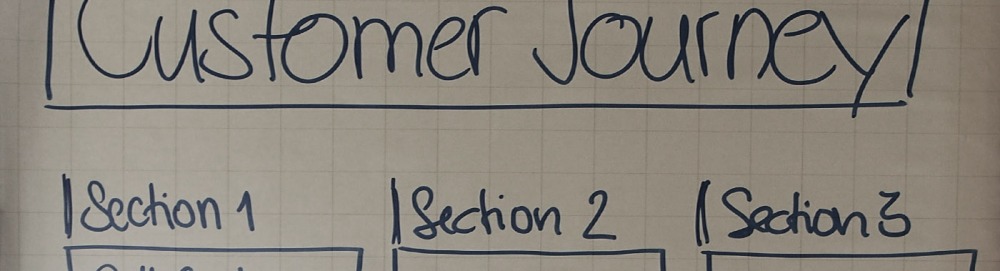 Customer Journey
Section 1
Section 2
Section 3